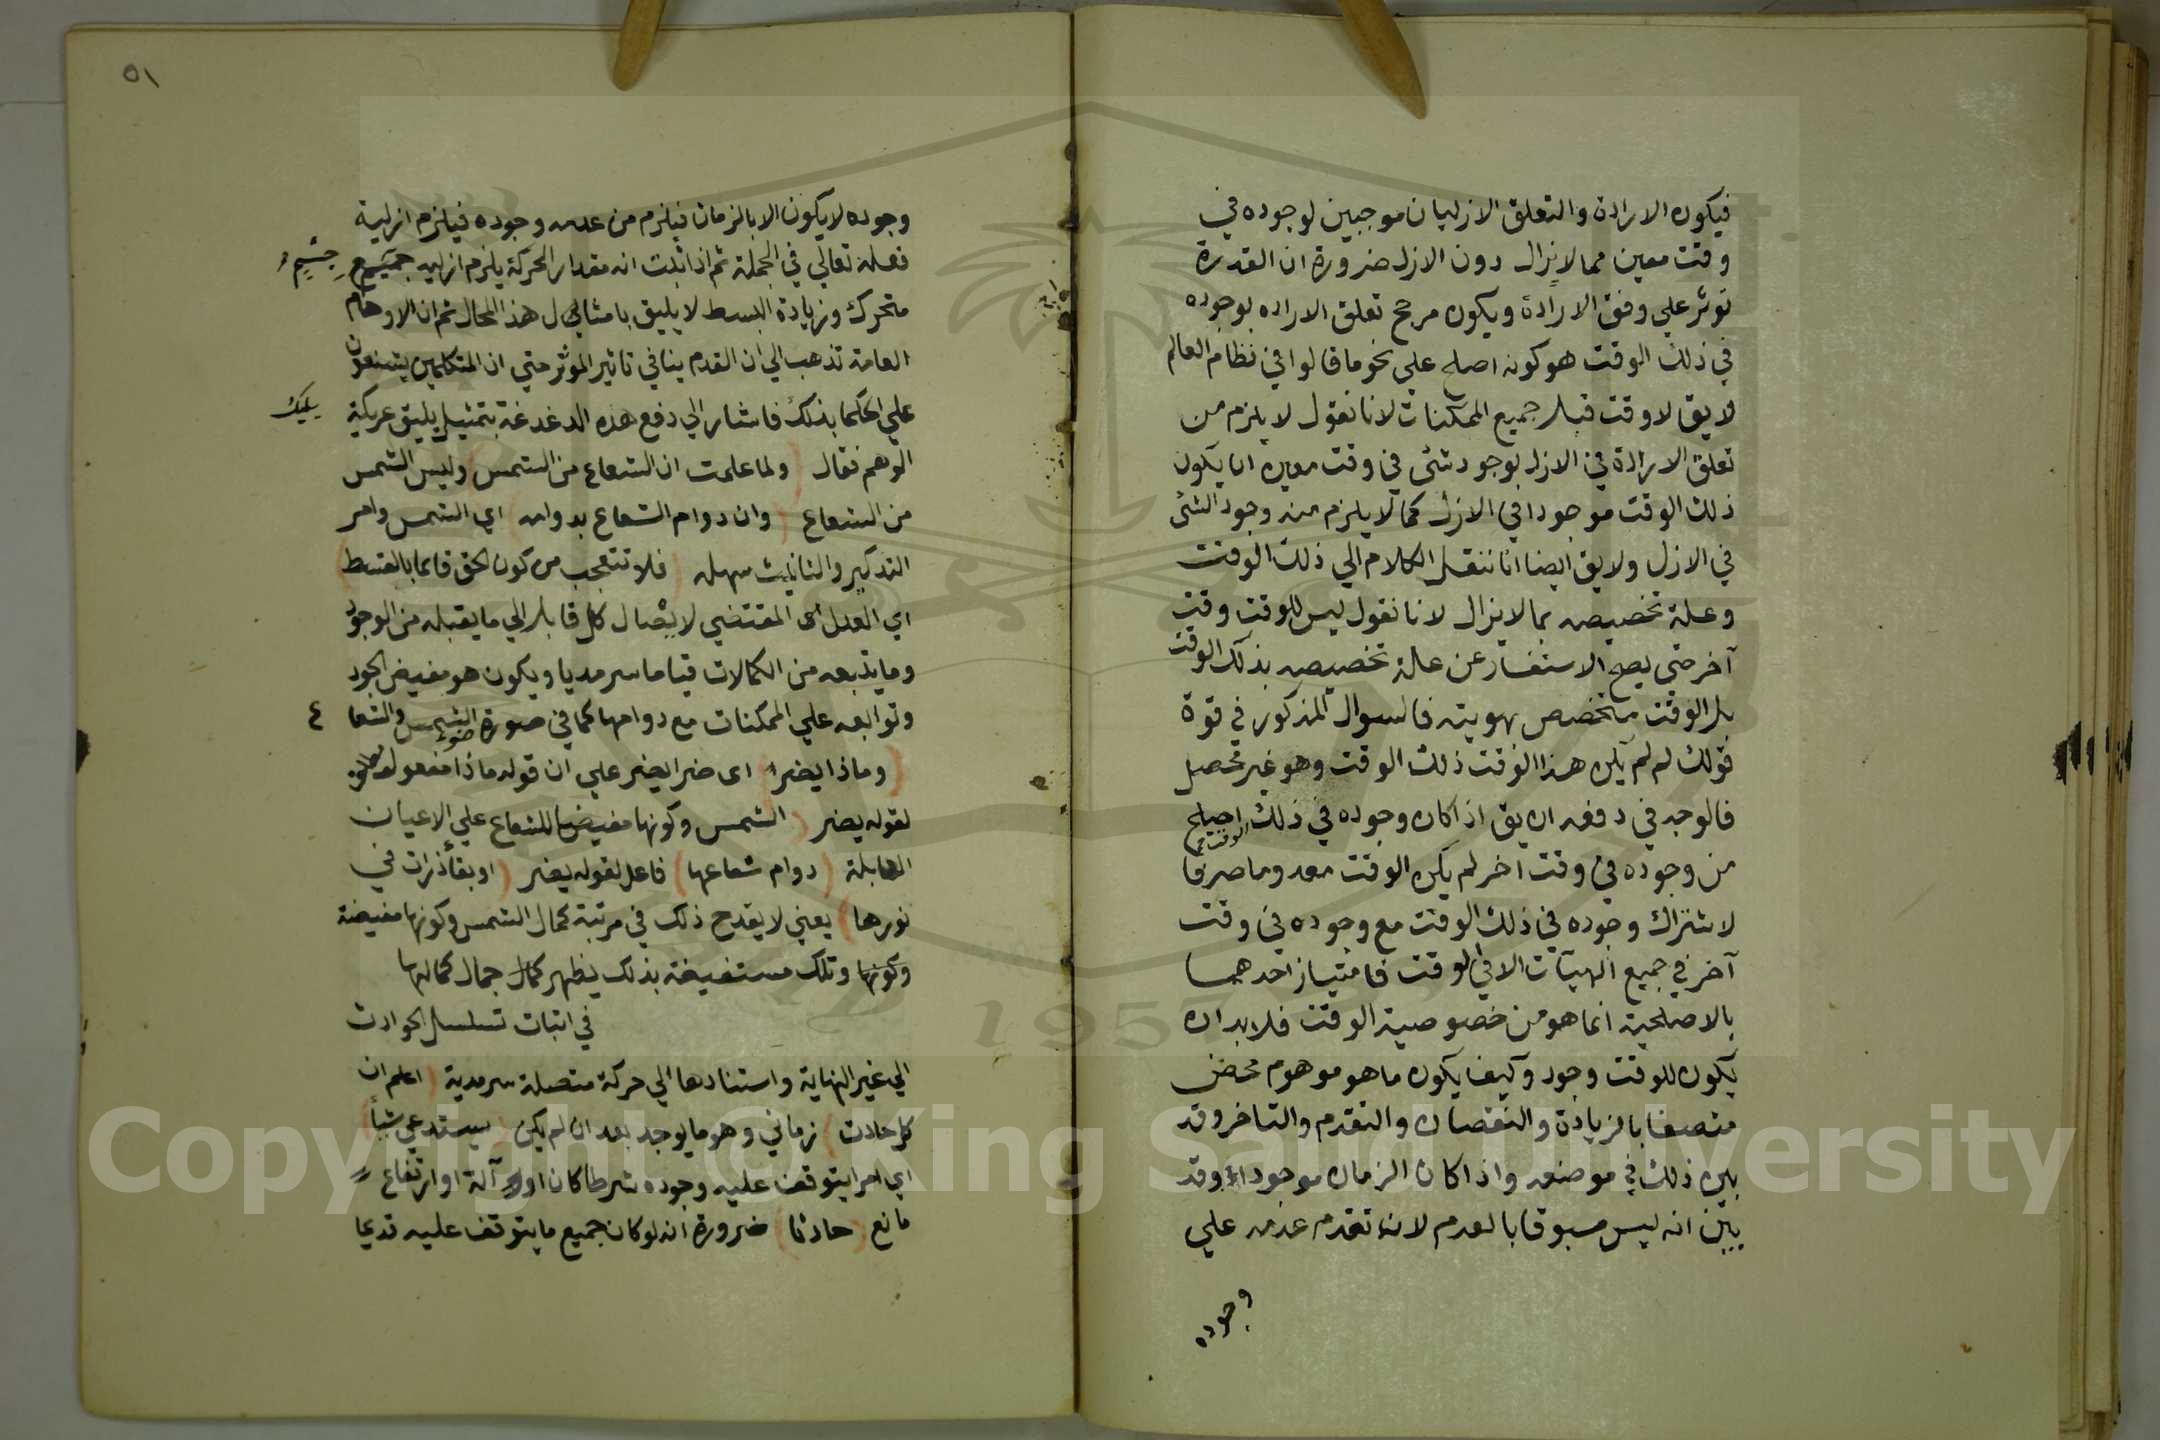 فيكون الارادة والتعلق الازليان موجبين لوجوده في
وقت معين مما لايزال دون الازل ضرورة ان القدرة
توثر علي وفق الارادة ويكون مرجح تعلق الاراده بوجوده
في ذلك الوقت هو كونه اصلح علي نحو ما قالوا في نظام العالم
لايق لا وقت قبل جميع الممكنات لانا نقول لا يلزم من
تعلق الارادة في الازل بوجود شئ في وقت معين ان يكون
ذلك الوقت موجودا في الازل كما لا يلزم منه وجود الشئ
في الازل ولايق ايضا انا ننقل الكلام الي ذلك الوقت
وعلة تخصيصه بما لايزال لانا نقول ليس للوقت وقت
آخر حتى يصح الاستفسار عن علة تخصيصه بذلك الوقت
بل الوقت متخصص بهويته فالسوال المذكور في قوة
قولك لم لم يكن هذا الوقت ذلك الوقت وهو غير محصل
فالوجه في دفعه ان يق اذا كان وجوده في ذلك الوقت اصلح
من وجوده في وقت آخر لم يكن الوقت معدوما صرفا
لاشتراك وجوده في ذلك الوقت مع وجوده في وقت
آخر في جميع الهيآت الا في الوقت فامتياز احدهما
بالاصلحية انما هو من خصوصية الوقت فلا بد ان
يكون للوقت وجود وكيف يكون ما هو موهوم محض
متصفا بالزيادة والنقصان والتقدم والتاخر وقد
بين ذلك في موضعه واذا كان الزمان موجودا وقد
يبين انه ليس مسبوقا بالعدم لان تقدم عدمه علي
وجوده
٥١
وجوده لايكون الا بالزمان فيلزم من عدمه وجوده فيلزم ازلية
فعله تعالي في الجملة ثم اذا ثبت انه مقدار الحركة يلزم ازليه جميع جسم
متحرك وزيادة البسط لايليق بامثال هذا المحال ثم ان الاوهام
العامة تذهب الي ان القدم ينافي تاثير الموثر حتي ان المتكلمين يشنعون
علي الحكما بذلك فاشار الي دفع هذه الدغدغة بتمثيل يليق عريكة
يليك
الوهم فقال ولما علمت ان الشعاع من الشمس وليس الشمس
من الشعاع وان دوام الشعاع بدوامه اي الشمس وامر
التذكير والتانيث سهل فلا تتعجب من كون الحق قائما بالقسط
اي العدل المقتضي لايصال كل قابل الي ما يقبله من الوجود
وما يتبعه من الكمالات قياما سرمديا ويكون هو مفيض الجود
وتوابعه علي الممكنات مع دوامها كما في صورة الشمس والشعا ع
وماذا يضر اى ضر ايضر علي ان قوله ماذا مفعول مطلق
لقوله يضر الشمس وكونها مفيضا للشعاع علي الاعيان
القابلة دوام شعاعها فاعل لقوله يضر او بقا ذرات في
نورها يعني لا يقدح ذلك في مرتبة كمال الشمس وكونها مفيضة
وكونها وتلك مستفيضة بذلك يظهر كمال جمال كمالها
في اثبات تسلسل الحوادث
الي غير النهاية واستنادها الي حركة متصلة سرمدية اعلم ان
كل حادث زماني وهو ما يوجد بعد ان لم يكن يستدعي شيأ
اي امرا يتوقف عليه وجوده شرطا كان او آلة او ارتفاع
مانع حادثا ضرورة انه لو كان جميع ما يتوقف عليه قديما
Copyright © King Saud University
1957